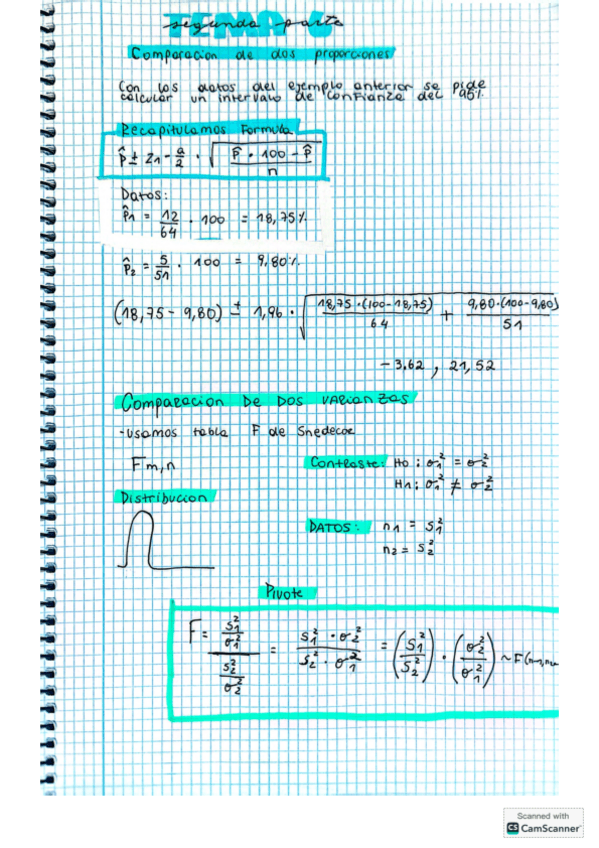 TEMA 6
segunda parte
Comparacion de dos proporciones
Con los datos del ejemplo anterior se pide
calcular un intervalo de confianza del 95%.
Recapitulamos Formula
p̂ ± z1-a/2 · √(p̂ · 100 - p̂ / n)
Datos:
p̂1 = 12/64 · 100 = 18,75%
p̂2 = 5/51 · 100 = 9,80%
(18,75 - 9,80) ± 1,96 · √(18,75 · (100-18,75) / 64 + 9,80·(100-9,80) / 51)
- 3.62 , 21,52
Comparacion De Dos varianzas
-usamos tabla F de Snedecor
Fm,n
Contraste: Ho : σ1² = σ2²
H1 : σ1² ≠ σ2²
Distribucion
DATOS: n1 = S1²
n2 = S2²
Pivote
F = (S1²/σ1²) / (S2²/σ2²) = S1² · σ2² / S2² · σ1² = (S1²/S2²) · (σ2²/σ1²) ~ F(n-1,n2
Scanned with
CS CamScanner